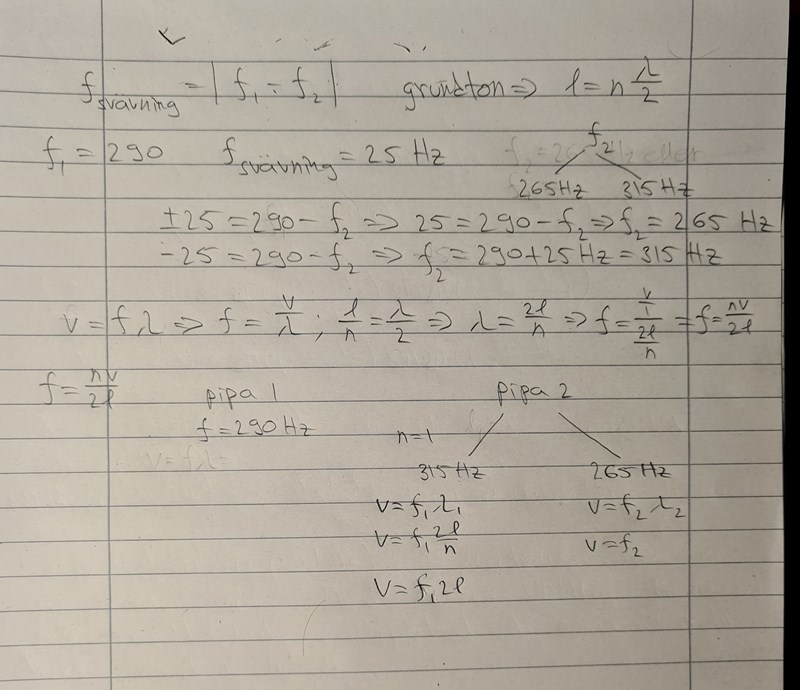 f_svävning = |f₁ - f₂|   grundton ⇒ l = n λ/2
f₁ = 290   f_svävning = 25 Hz   f₂
265Hz   315Hz
±25 = 290 - f₂ ⇒ 25 = 290 - f₂ ⇒ f₂ = 265 Hz
-25 = 290 - f₂ ⇒ f₂ = 290 + 25 Hz = 315 Hz
v = fλ ⇒ f = v/λ ; l/n = λ/2 ⇒ λ = 2l/n ⇒ f = (v/1)/(2l/n) = f = nv/2l
f = nv/2l   pipa 1   pipa 2
f = 290 Hz   n=1
315 Hz   265 Hz
v = f₁λ₁   v = f₂λ₂
v = f₁ 2l/n   v = f₂
v = f₁2l